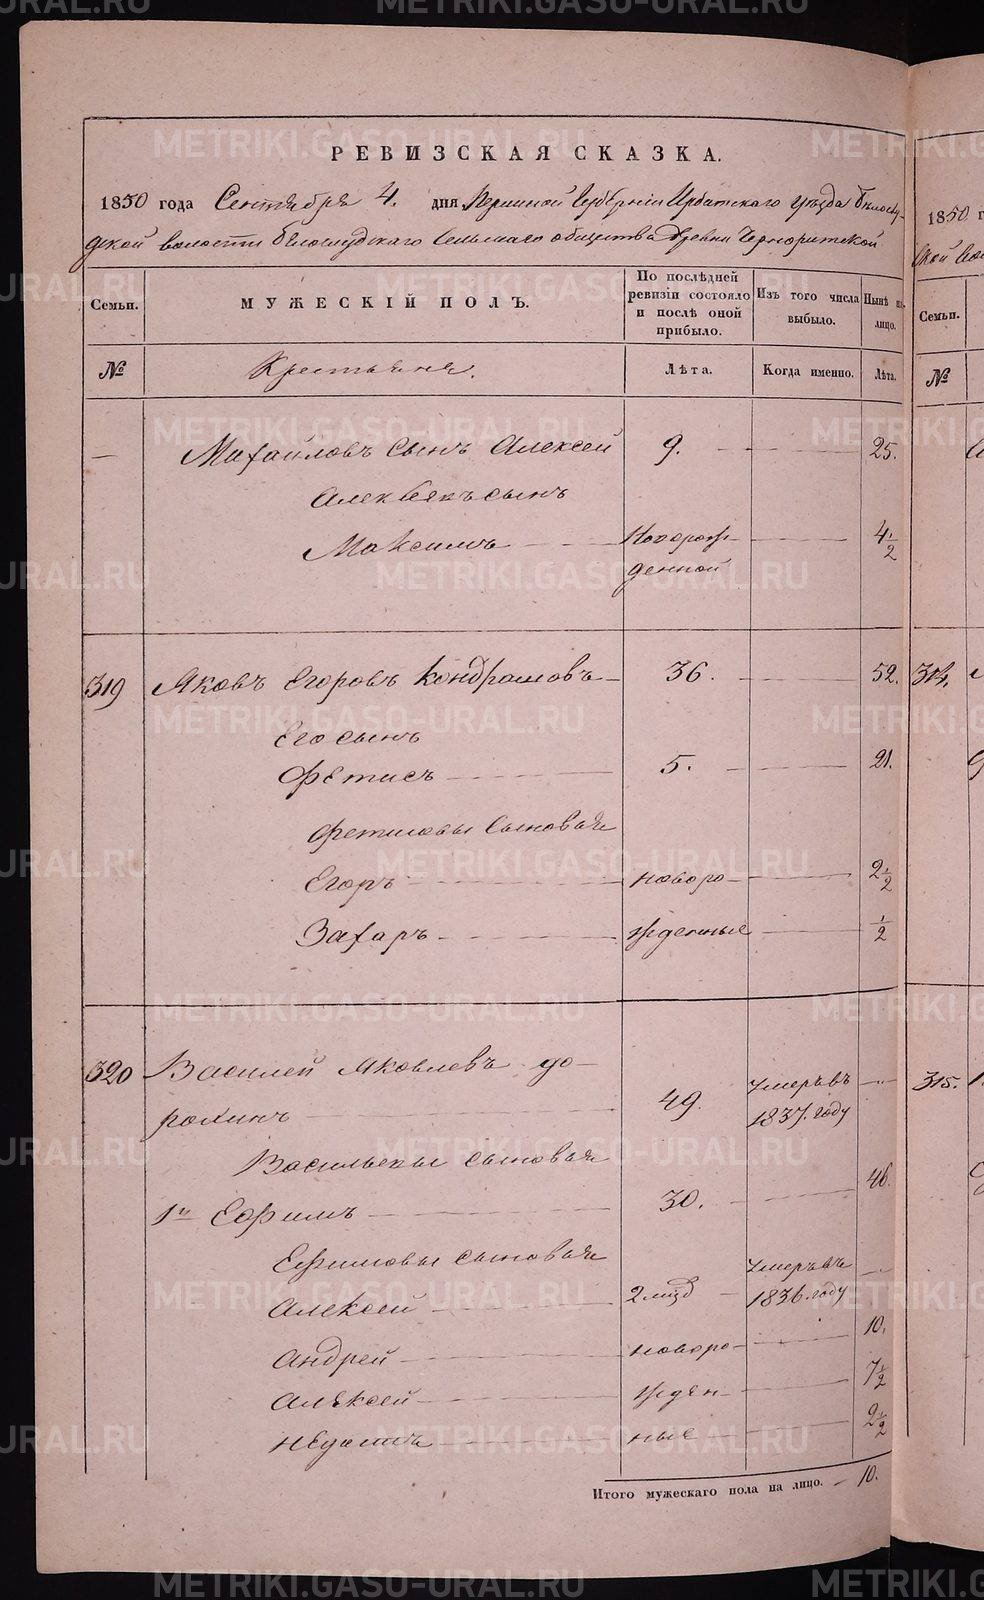 РЕВИЗСКАЯ СКАЗКА.
1850 года Сентября 4. дня Пермской Губерніи Ирбитскаго уѣзда Бѣлослу-
дской волости Бѣлослудскаго Сельскаго общества Дрѣвни
Семьи. МУЖЕСКІЙ ПОЛЪ. По послѣдней ревизіи состояло и послѣ оной прибыло. Изъ того числа выбыло. Нынѣ на лицо.
№ Крестьяне. Лѣта. Когда именно. Лѣта.
— Михайловъ сынъ Алексей 9. 25.
Алексѣевъ сынъ
Максимъ Новорож- 4 1/2
денной
319 Яковъ Егоровъ Кондрашовъ 36. 52.
Его сынъ
Фетисъ 5. 21.
Фетисовы Сыновья
Егоръ новоро- 2 1/2
Захаръ жденные 1/2
320 Василей Яковлевъ До- Умеръ въ
рохинъ 49. 1837. году
Васильевы сыновья
1й Ефимъ 30. 46.
Ефимовы сыновья Умеръ въ
Алексей 2 мѣд 1836. году
Андрей новоро- 10.
Алексей жден- 7 1/2
Иѳдотъ ные 2 1/2
Итого мужескаго пола на лицо. 10.
1850 г
Семьи.
№
314.
315.
METRIKI.GASO-URAL.RU